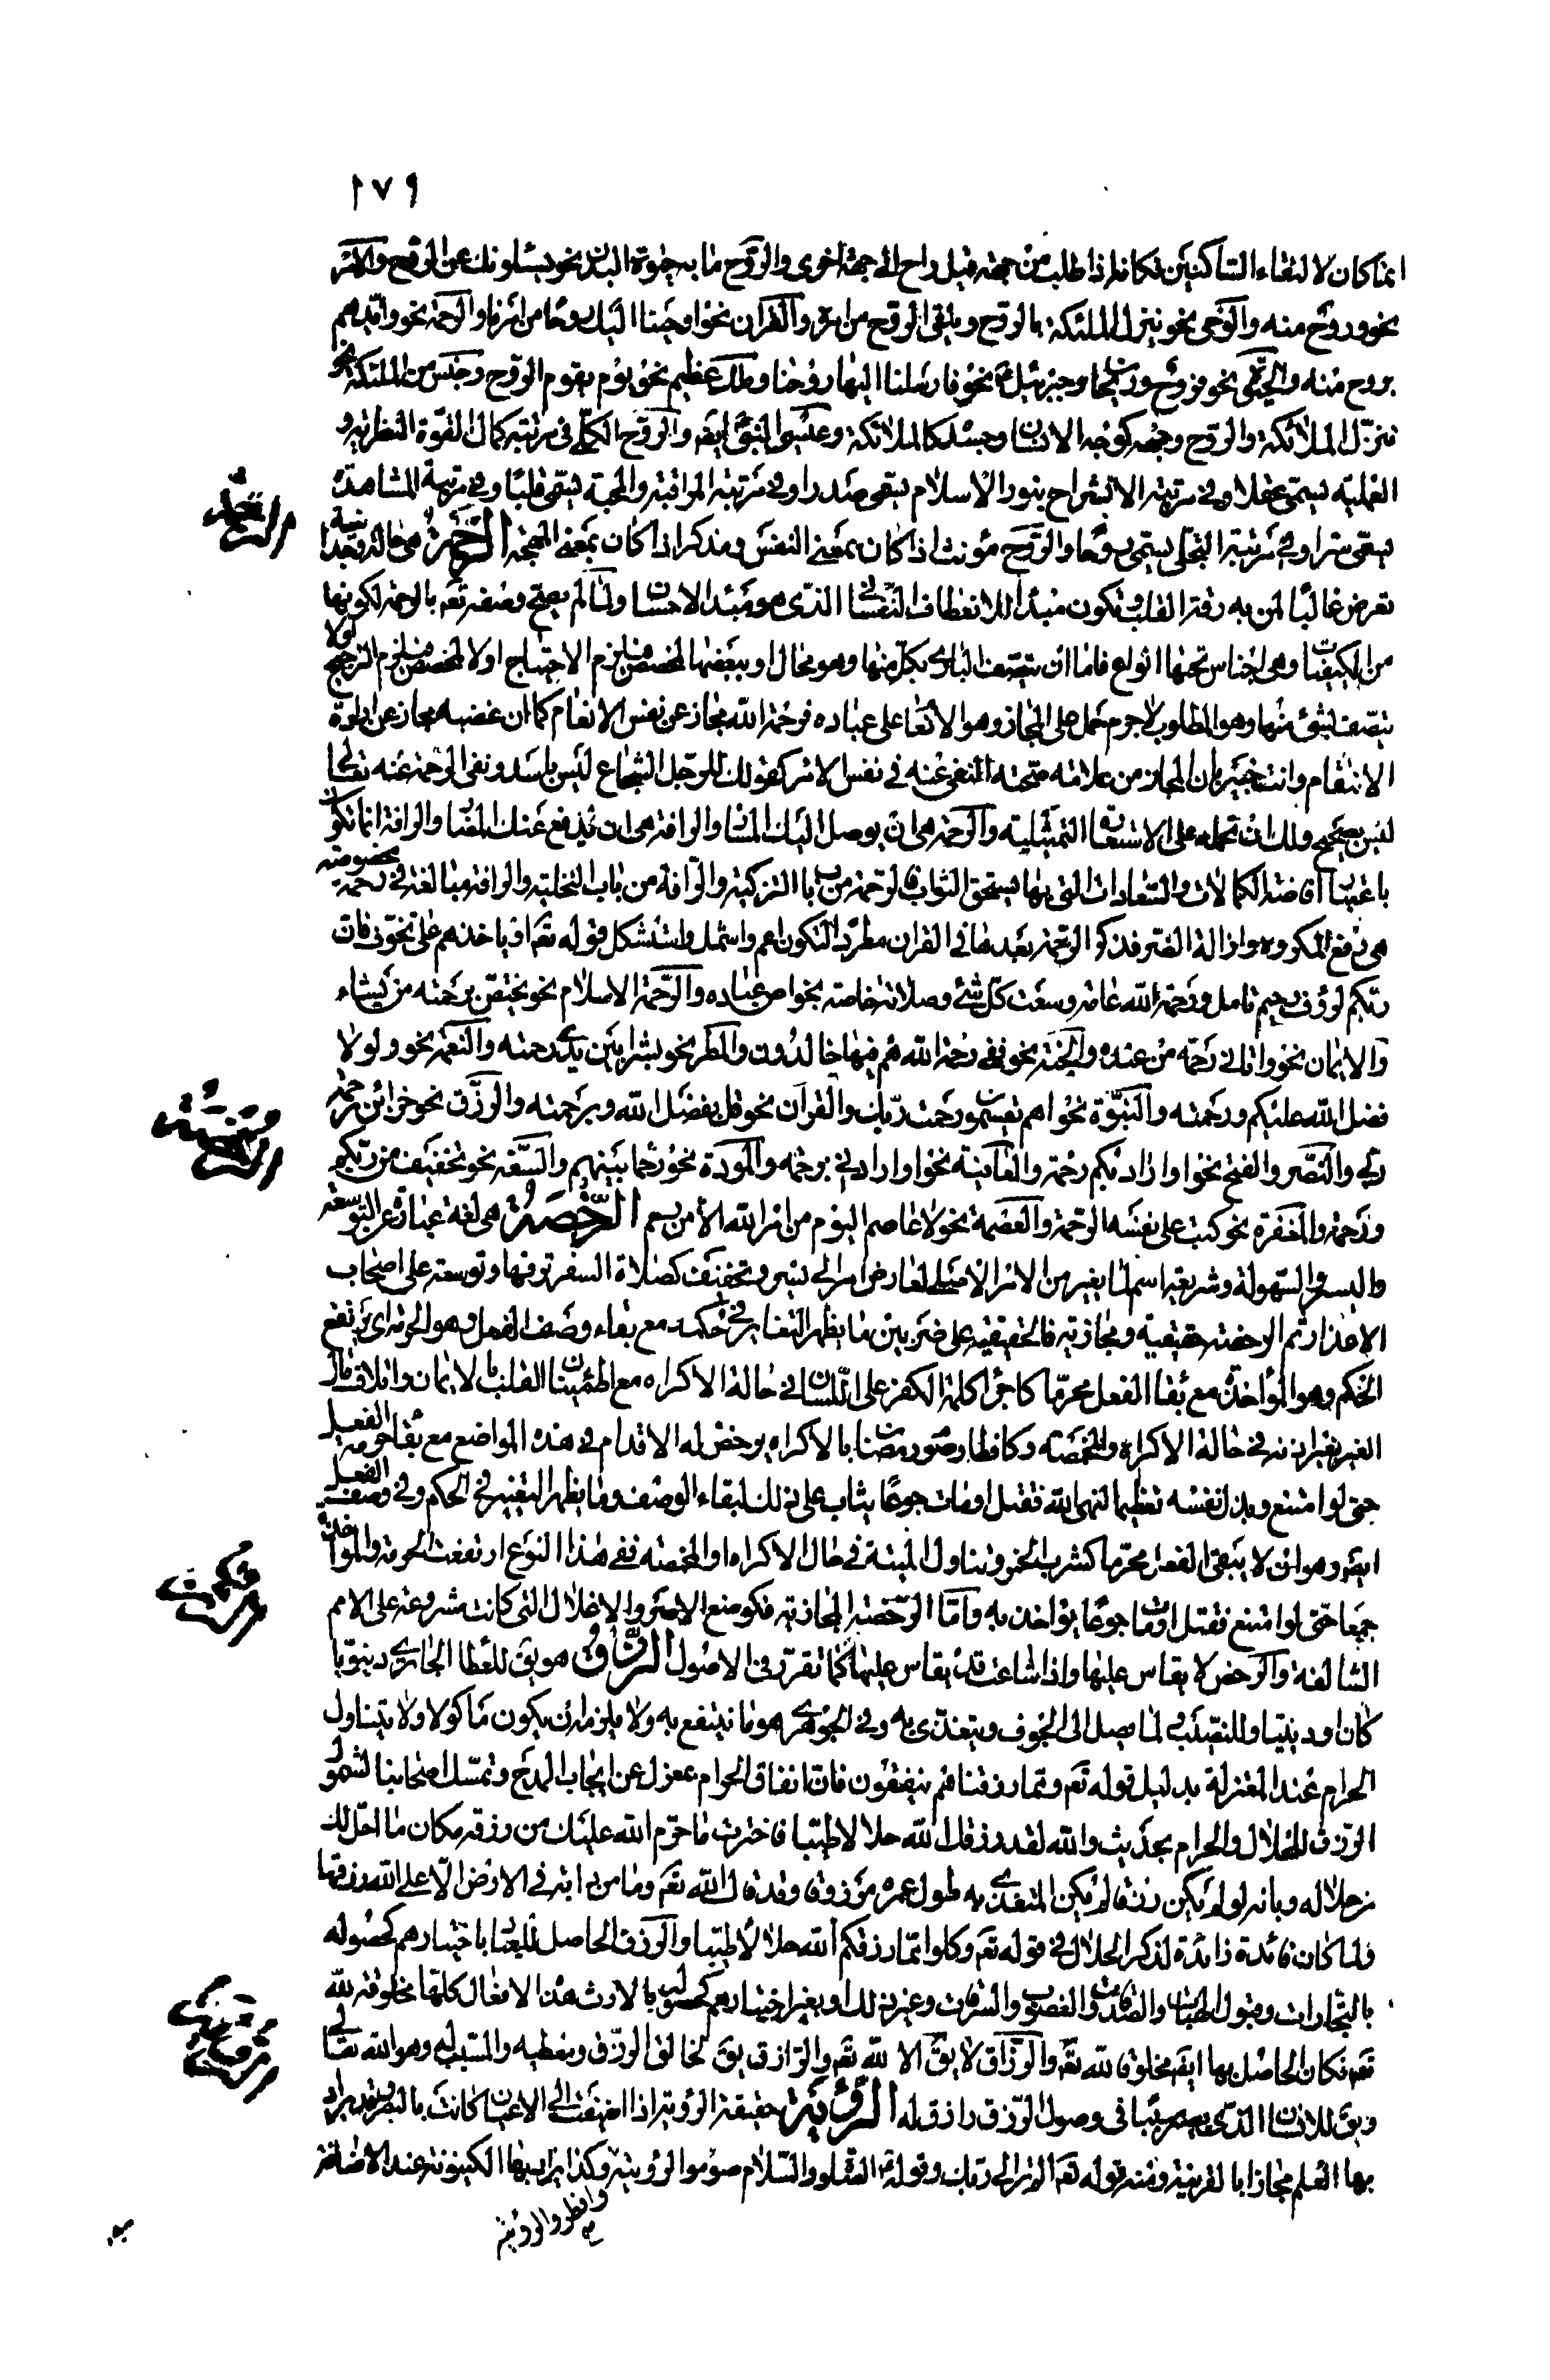 ١٧٩
انما كان لالتقاء الساكنين فكانه اذا طلب من جهة قيل راح الى جهة اخرى والرّوح ما به حيوة البدن نحو يسئلونك عن الروح والامر
نحو وروح منه والوحى نحو ينزل الملئكة بالروح ويلقى الروح من امره والقران نحو اوحينا اليك روحا من امرنا والرحمة نحو وايّدهم
بروح منه والحيوة نحو فروح وريحان وجبرئيل نحو فارسلنا اليها روحنا وملك عظيم نحو يوم يقوم الرّوح وجنس من الملئكة نحو
تنزّل الملائكة والروح وجهه كوجه الانسان وجسده كالملائكة وعيسى النبى ايضا والرّوح الكلّى فى مرتبة كمال القوة النظرية و
العمليه يسمّى عقلا وفى مرتبة الانشراح بنور الاسلام يسمى صدرا وفى مرتبة المراقبة والمحبة يسمّى قلبا وفى مرتبة المشاهدة
يسمى سرا وفى مرتبة التجلى يسمى روحا والرّوح مؤنث اذا كان بمعنى النفس ومذكر اذا كان بمعنى المهجة الرَّحمَةُ هى حالة وجدانية
تعرض غالبا لمن به رقة القلب وتكون مبدأ للانعطاف النفسانى الذى هو مبدأ الاحسان ولما لم يصح وصفه تعه بالرحمة لكونها
من الكيفيات وهى اجناس تحتها انواع فاما ان يتصف البارى بكل منها وهو محال او ببعضها لمخصص فيلزم الاحتياج او لا لمخصص فيلزم الترجيح او لا
يتصف بشئ منها وهو المطلوب لا جرم حمل على المجاز وهو الانعام على عباده فرحمة الله مجاز عن نفس الانعام كما ان غضبه مجاز عن ارادة
الانتقام وانت خبير بان المجاز من علامته صحة النفى عنه فى نفس الامر كقولك للرجل الشجاع ليس باسد ونفى الرحمة عنه تعالى
ليس بصحيح ولك ان تحمله على الاستعارة التمثيلية والرحمة هى ان يوصل اليك المسار والرافة هى ان يدفع عنك المضار والرافة انما تكون
باعتبار افاضة الكمالات والسعادات التى بها يستحق الثواب فالرحمة من باب التزكية والرّافة من باب التخلية والرافة مبالغة فى رحمة مخصوصة
هى دفع المكروه وازالة الضر فذكر الرحمة بعدها فى القران مطردا لتكون اعم واشمل واستشكل قوله تعه او ياخذهم على تخوّف فان
ربّكم لرؤف رحيم تامل ورحمة الله عامة وسعت كل شئ وصلاته خاصة بخواص عباده والرّحمة الاسلام نحو يختصّ برحمته من يشاء
والايمان نحو واتانى رحمة من عنده والجنة نحو ففى رحمة الله هم فيها خالدون والمطر نحو بشرا بين يدى رحمته والنعمة نحو ولولا
فضل الله عليكم ورحمته والنبوّة نحو اهم يقسمون رحمت ربّك والقرآن نحو قل بفضل الله وبرحمته والرزق نحو خزائن رحمة
ربى والنّصر والفتح نحو او اراد بكم رحمة والعافية نحو او ارادنى برحمة والمودة نحو رحماء بينهم والسّعة نحو تخفيف من ربّكم
ورحمة والمغفرة نحو كتب على نفسه الرحمة والعصمة نحو لا عاصم اليوم من امر الله الا من رحم الرّخصَةُ هى لغة عبارة عن التوسعة
واليسر والسهولة وشريعة اسم لما يغير من الامر الاصلى لعارض امر الى يسر وتخفيف كصلاة السفر ترفها وتوسعة على اصحاب
الاعذار ثم الرخصة حقيقية ومجازية فالحقيقية على ضربين ما يظهر التغاير فى حكمه مع بقاء وصف الفعل وهو الحرمة اى يرتفع
الحكم وهو المؤاخذة مع بقاء الفعل محرّما كاجراء كلمة الكفر على اللسان فى حالة الاكراه مع اطمئنان القلب بالايمان واتلاف مال
الغير بغير اذنه فى حالة الاكراه والمخمصة وكافطار صوم رمضان بالاكراه يرخص له الاقدام فى هذه المواضع مع بقاء حرمة الفعل
حتى لو امتنع وبذل نفسه تعظيما لنهى الله فقتل او مات جوعا يثاب على ذلك لبقاء الوصف وما يظهر التغيير فى الحكم وفى وصف الفعل
ايضه وهو ان لا يبقى الفعل محرما كشرب الخمر وتناول الميتة فى حال الاكراه او المخمصة ففى هذا النوع ارتفعت الحرمة والمؤاخذة
جميعا حتى لو امتنع فقتل او مات جوعا يؤاخذ به وامّا الرّخصة المجازية فكوضع الاصر والاغلال التى كانت مشروعة على الامم
السالفة والرخص لا يقاس عليها واذا شاعت قد يقاس عليها كما تقرر فى الاصول الرّزقُ هو يق للعطاء الجارى دينويا
كان او دينيا وللنصيب ولما يصل الى الجوف ويتغذى به وفى الجوهرى هو ما ينتفع به ولا يلزم ان يكون مأكولا ولا يتناول
الحرام عند المعتزلة بدليل قوله تعه ومما رزقناهم ينفقون فان انفاق الحرام بمعزل عن ايجاب المدح وتمسّك اصحابنا لشمول
الرّزق للحلال والحرام بحديث والله لقد رزقك الله حلالا طيّبا فاخترت ما حرّم الله عليك من رزقه مكان ما احل لك
من حلاله وبانه لو لم يكن رزقا لم يكن المتغذى به طول عمره مرزوقا وقد قال الله تعه وما من دابة فى الارض الّا على الله رزقها
فلما كان فائدة زائدة لذكر الحلال فى قوله تعه وكلوا ممّا رزقكم الله حلالا طيّبا والرّزق الحاصل للعباد باختيارهم كحصوله
بالتجارات وقبول الهبات والصدقات والغصوب والسرقات وغير ذلك او بغير اختيارهم كحصوله بالارث هذا الافعال كلها مخلوقة لله
تعه فكان الحاصل بها ايضه مخلوقا لله تعه والرّزاق لا يق الا لله تعه والرازق يق لخالق الرّزق ومعطيه والمتسبب له وهو الله تعالى
ويق للانسان الذى يصير سببا فى وصول الرّزق رازق له الرُّؤيَةُ حقيقة الرؤية اذا اضيفت الى الاعيان كانت بالبصر وقد يراد
بها العلم مجازا بالقرينة ومنه قوله تعه الم تر الى ربّك وقوله عليه الصلوة والسّلام صوموا لرؤيته وكذا يراد بها الكينونة عند الاضافة
وافطروا لرؤيته
الرحمة
الرخصة